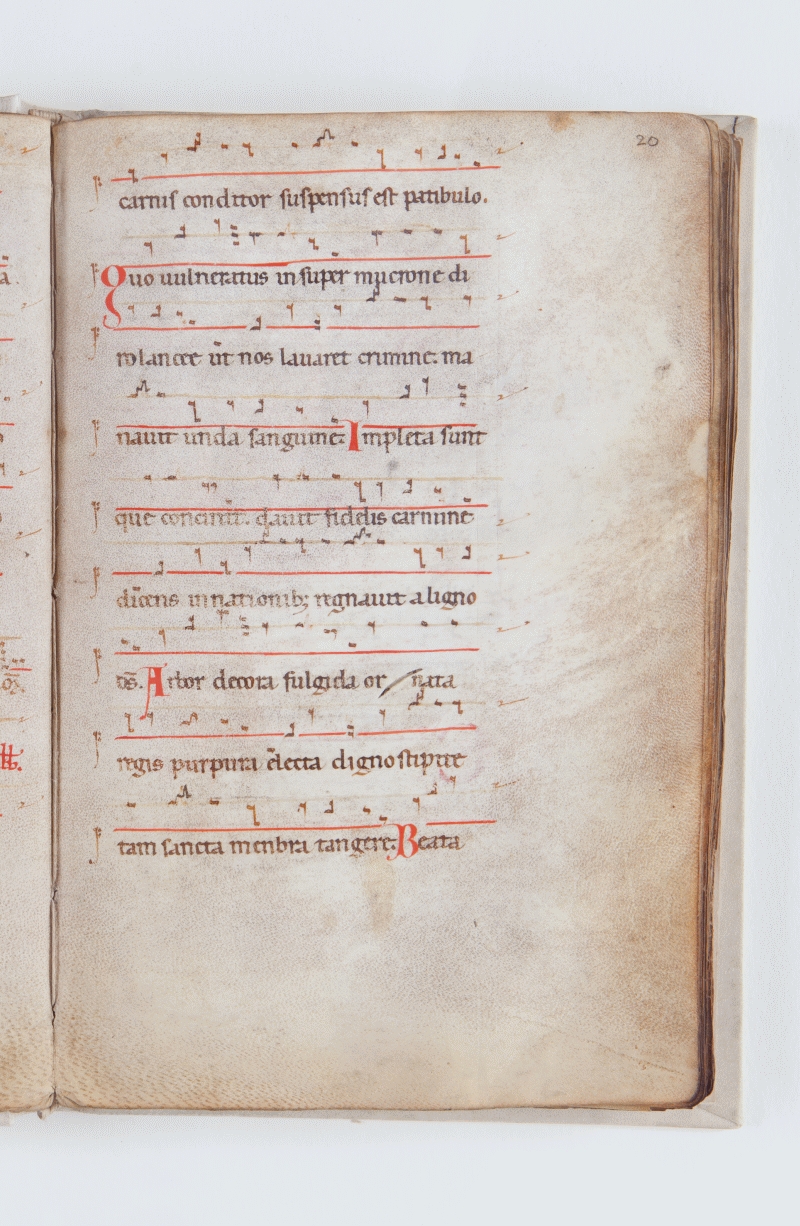 20
carnis conditor suspensus est patibulo.
Quo uulneratus insuper mucrone di
ro lancee ut nos lauaret crimine. ma
nauit unda sanguine. Impleta sunt
que concinit. dauit fidelis carmine
dicens in nationib; regnauit a ligno
ds̄. Arbor decora fulgida or nata
regis purpura electa digno stipite
tam sancta menbra tangere. Beata